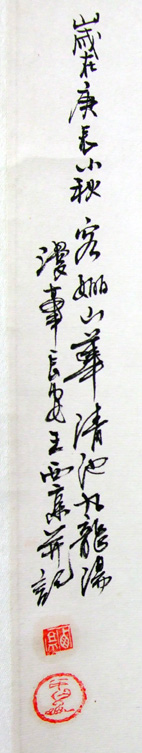 歲在庚辰小秋客骊山華清池九龍湯
漫筆長安王西京并記